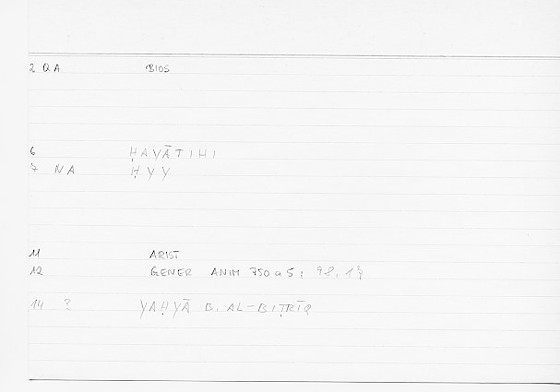 2 QA BIOS
6 ḤAYĀTIHI
7 NA ḤYY
11 ARIST
12 GENER ANIM 750a5; 98,
14 ? YAḤYĀ B. AL-BIṬRĪQ